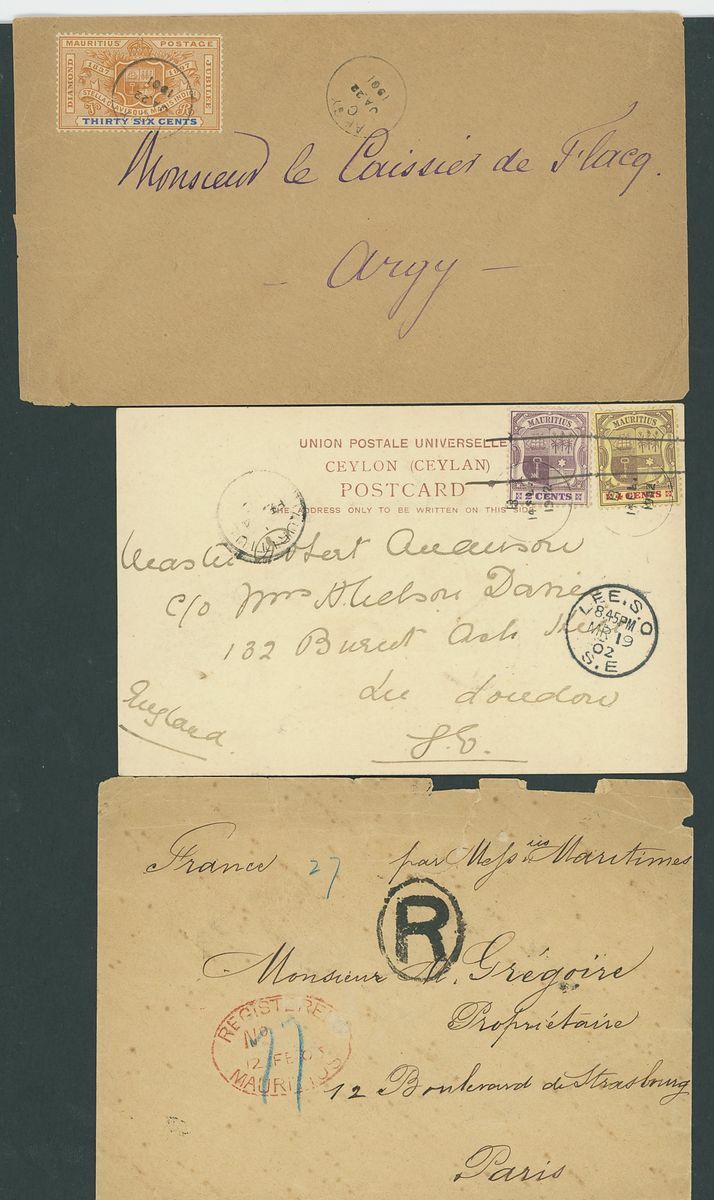 MAURITIUS POSTAGE
DIAMOND JUBILEE
1837 1897
STELLA CLAVISQUE MARIS INDICI
THIRTY SIX CENTS
22
1901
C
JA 22
1901
Monsieur le Caissier de Flacq.
- Argy -
UNION POSTALE UNIVERSELLE
CEYLON (CEYLAN)
POSTCARD
THE ADDRESS ONLY TO BE WRITTEN ON THIS SIDE
MAURITIUS
CENTS
MAURITIUS
4 CENTS
Master Anderson
c/o Mrs
132 Burnt Ash
Lee London
S.E.
England.
LEE.S.O
8.45PM
MR 19
02
S.E
France 27 par Mess ies Maritimes
R
Monsieur Grégoire
Propriétaire
REGISTERED
No 77
12 FE 0
MAURITIUS
12 Boulevard de Strasbourg
Paris